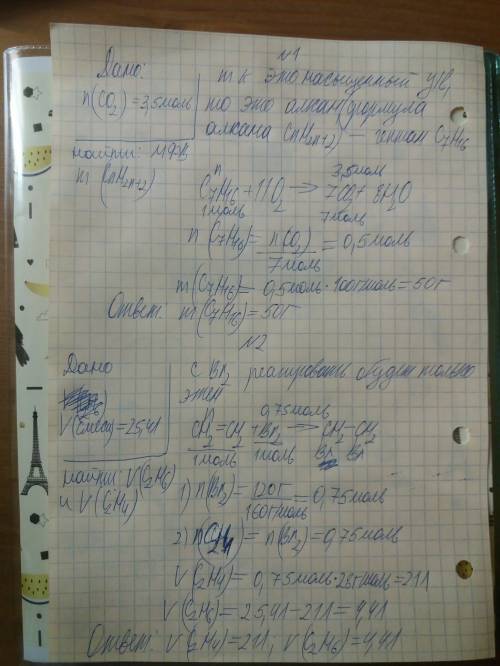 N1
Дано:
n(CO2) = 3,5моль
найти: МФВ
m (CnH2n+2)
т к это насыщенный у/в,
то это алкан(формула
алкана CnH2n+2) — гептан C7H16
n 3,5моль
C7H16 + 11O2 → 7CO2 + 8H2O
1моль 7моль
n (C7H16) = n(CO2) / 7моль = 0,5моль
m(C7H16) = 0,5моль · 100г/моль = 50г
Ответ: m(C7H16) = 50г
N2
Дано
V(смеси) = 25,4л
найти: V(C2H6)
и V(C2H4)
с Br2 реагировать будет только
этен
0,75моль
CH2 = CH2 + Br2 → CH2 - CH2
1моль 1моль Br Br
1) n(Br2) = 120г / 160г/моль = 0,75моль
2) n(C2H4) = n(Br2) = 0,75моль
V (C2H4) = 0,75моль · 28г/моль = 21л
V (C2H6) = 25,4л - 21л = 4,4л
Ответ: V(C2H4) = 21л, V(C2H6) = 4,4л